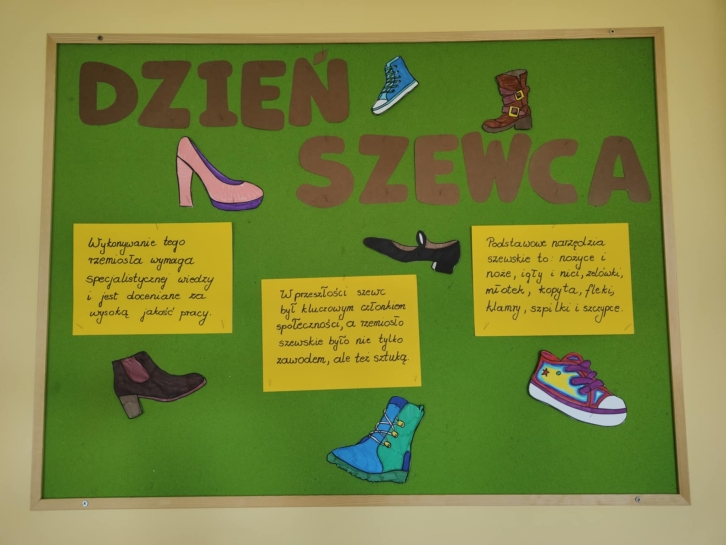 DZIEŃ
SZEWCA
Wykonywanie tego
rzemiosła wymaga
specjalistycznej wiedzy
i jest doceniane za
wysoką jakość pracy.
W przeszłości szewc
był kluczowym członkiem
społeczności, a rzemiosło
szewskie było nie tylko
zawodem, ale też sztuką.
Podstawowe narzędzia
szewskie to: nożyce i
noże, igły i nici, zelówki,
młotek, kopyta, fleki,
klamry, szpilki i szczypce.